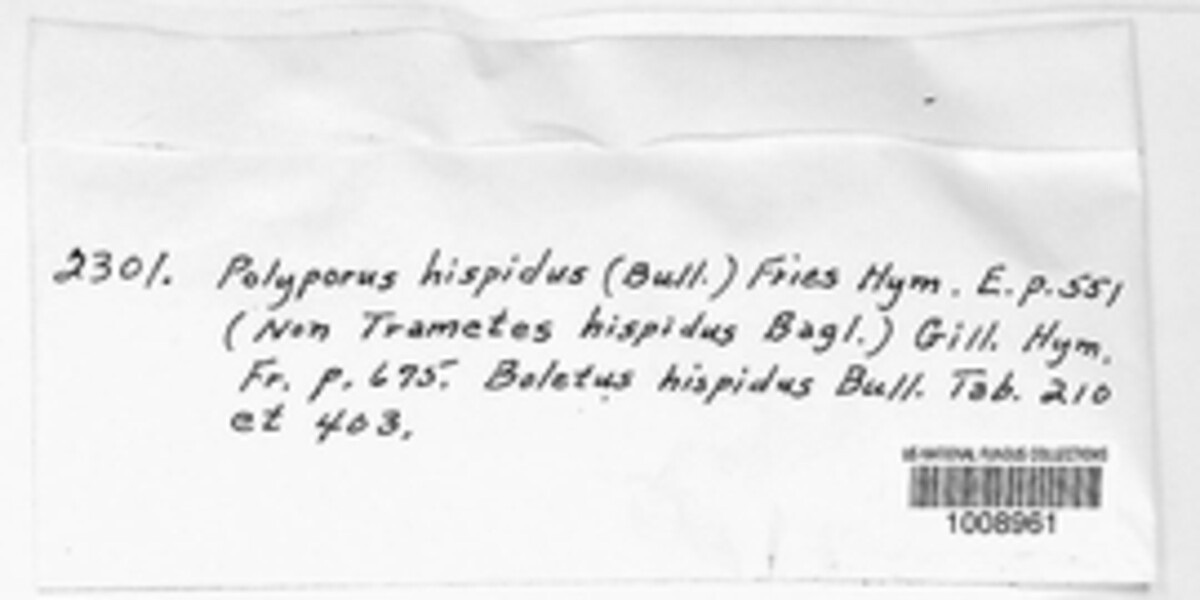 2301. Polyporus hispidus (Bull.) Fries Hym. E. p. 551
(Non Trametes hispidus Bagl.) Gill. Hym.
Fr. p. 675. Boletus hispidus Bull. Tab. 210
et 403.
US NATIONAL FUNGUS COLLECTIONS
1008961